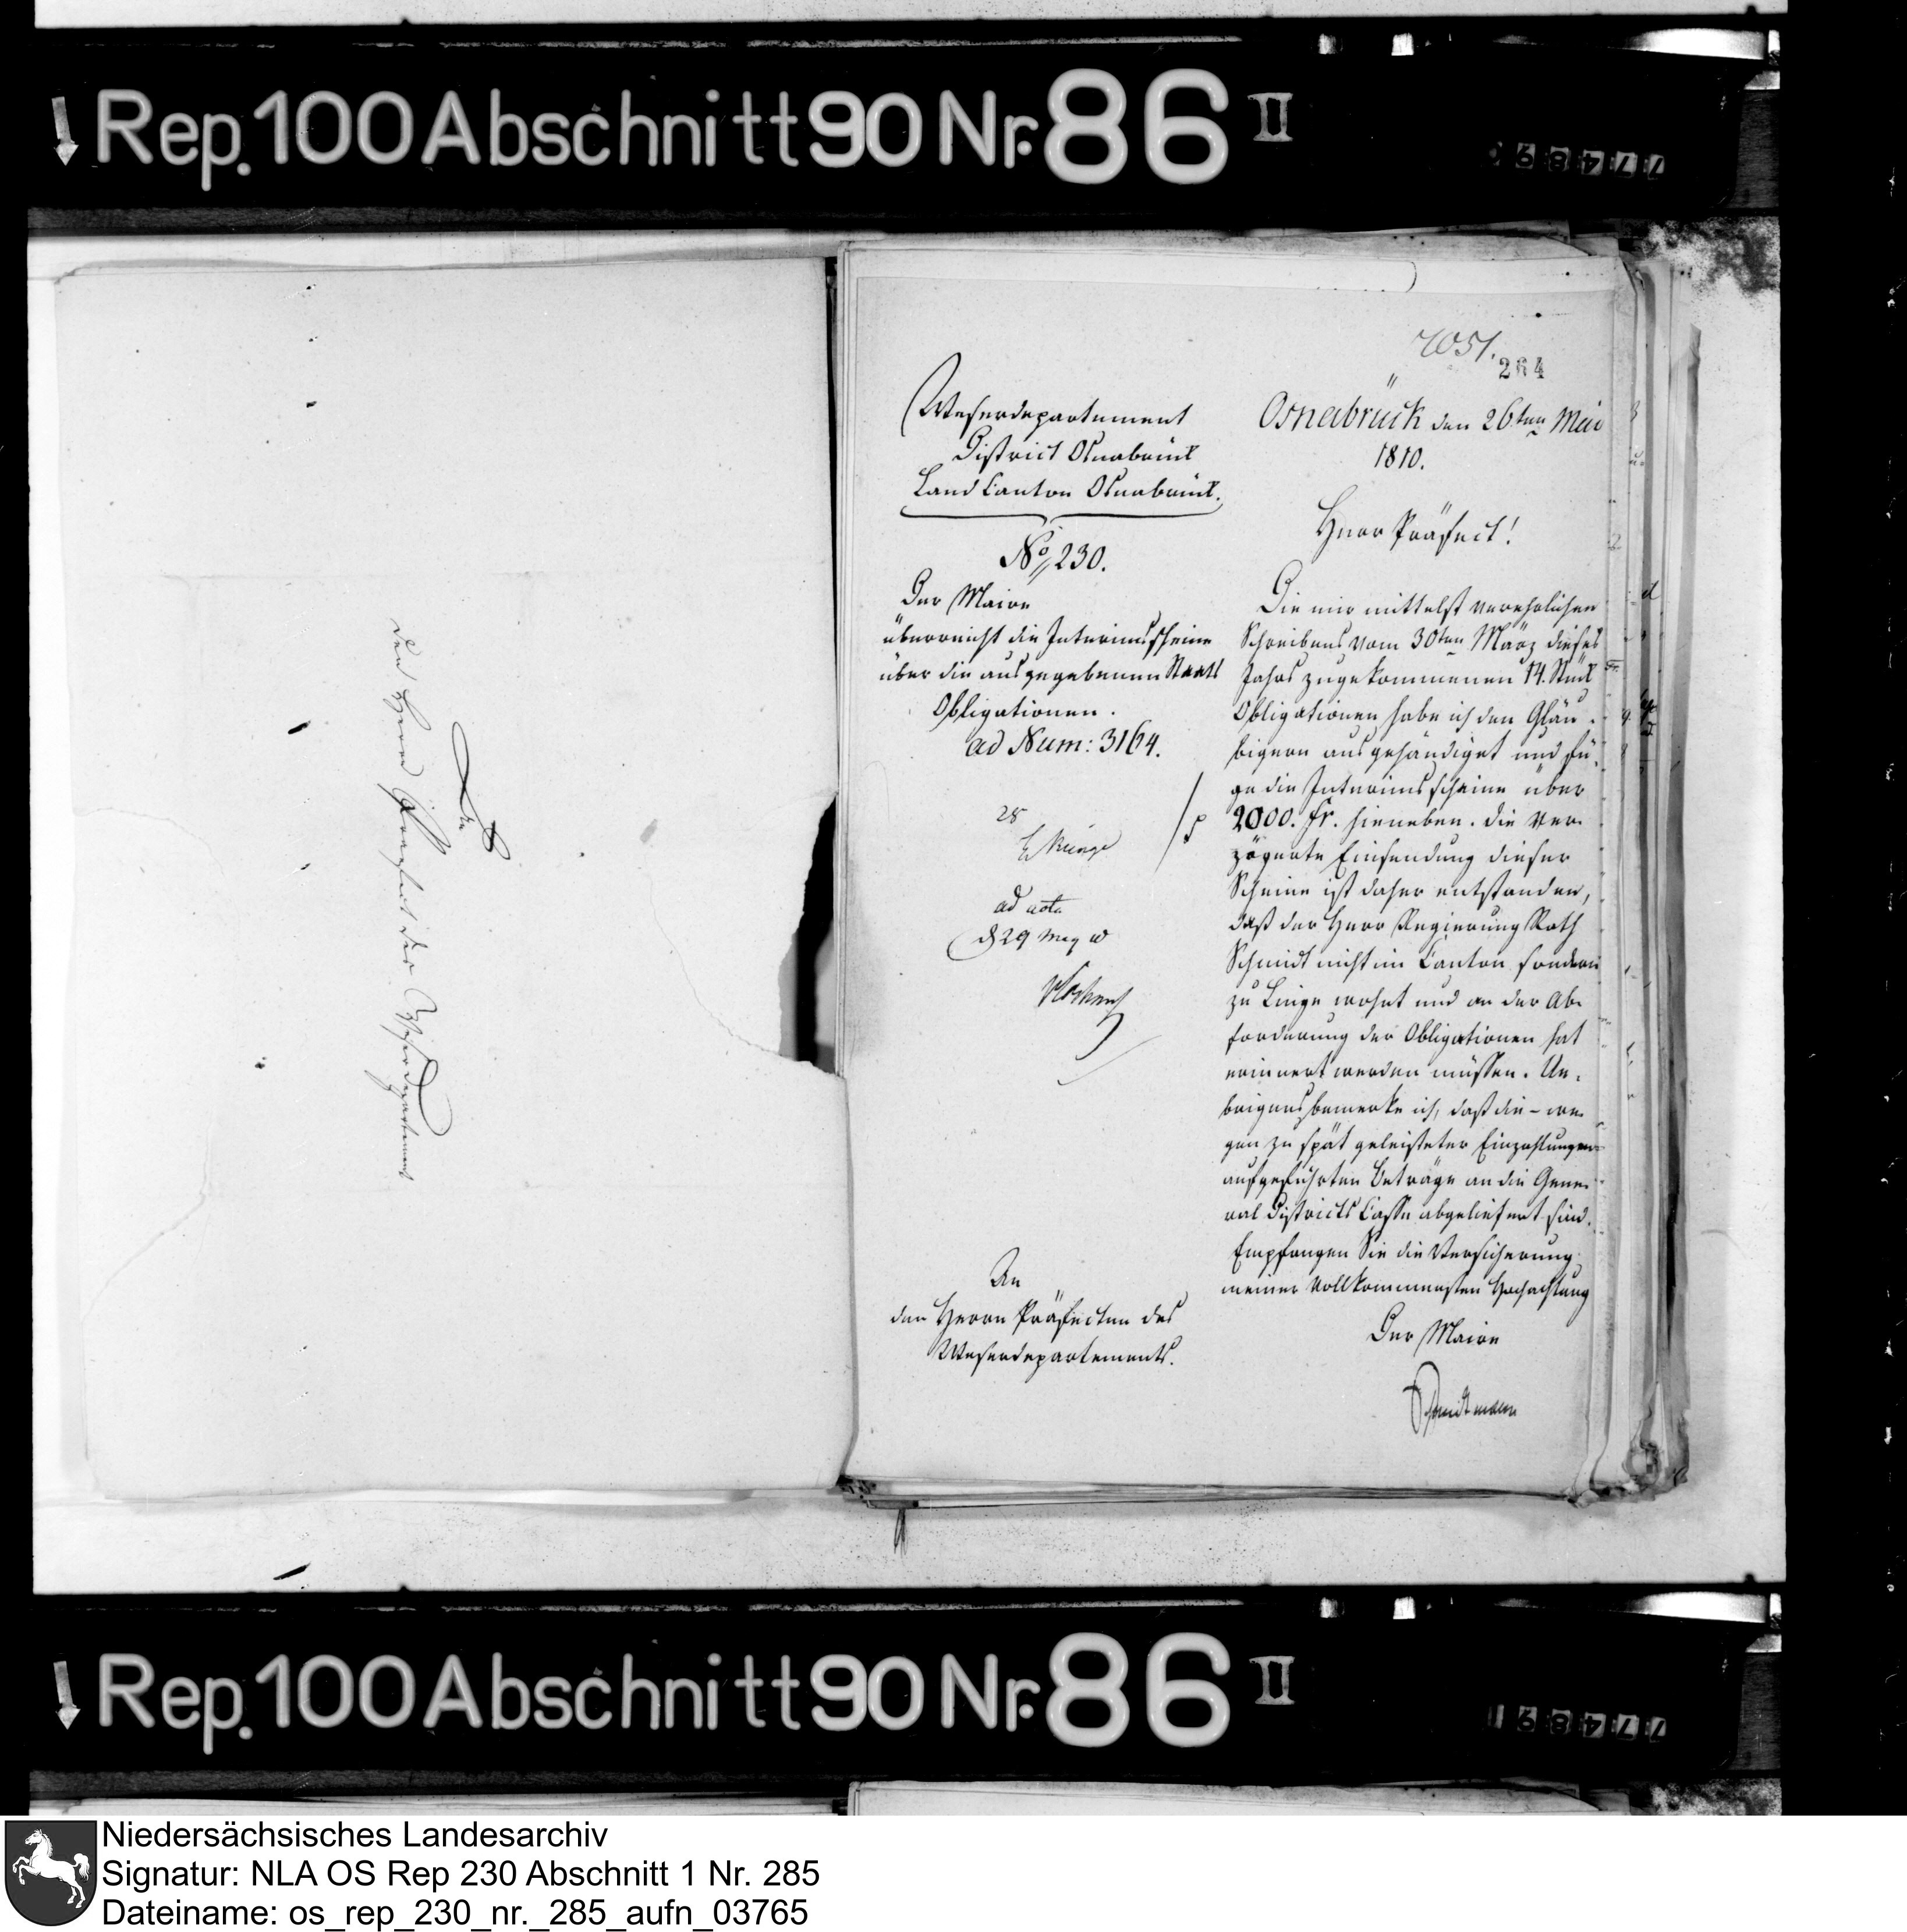 Rep. 100 Abschnitt 90 Nr. 86 II
An
den Herrn Praefect des Weserdepartement
264
Weserdepartement
District Osnabrück
Land Canton Osnabrück.
No 230.
Der Maire
überreicht die Interimsscheine
über die ausgegebenen Staats
Obligationen.
ad Num: 3164.
28
ad acta
d 29 May
An
den Herrn Präfecten des
Weserdepartements.
Osnabrück den 26ten Mai
1810.
Herr Präfect!
Die mir mittelst verehrlichen
Schreibens vom 30ten März dieses
Jahrs zugekommenen 14. Stück
Obligationen habe ich den Gläu-
bigern ausgehändiget und fü-
ge die Interimsscheine über
2000. Fr. hieneben. die Ver-
zögerte Einsendung dieser
Scheine ist daher entstanden,
daß der Herr Regierung Rath
Schmidt nicht im Canton sondern
zu Linge wohnt und an der Ab-
forderung der Obligationen hat
erinnert werden müssen. Ue-
brigens bemerke ich, daß die - we-
gen zu spät geleisteter Einzahlungen
aufgeführten Beträge an die Gene-
ral Districts Casse abgeliefert sind.
Empfangen Sie die Versicherung
meiner vollkommensten Hochachtung
Der Maire
Rep. 100 Abschnitt 90 Nr. 86 II
Niedersächsisches Landesarchiv
Signatur: NLA OS Rep 230 Abschnitt 1 Nr. 285
Dateiname: os_rep_230_nr._285_aufn_03765